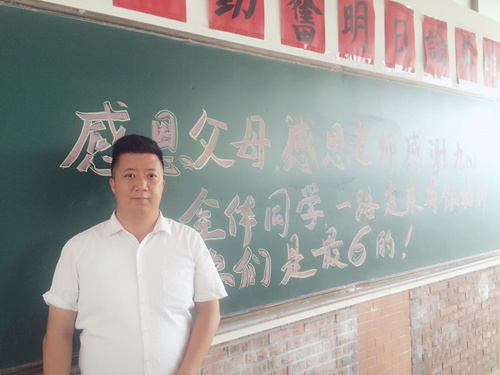 勤奮明日
感恩父母 感恩老师感谢九
全体同学一路走来有你相伴
我们是最6的！